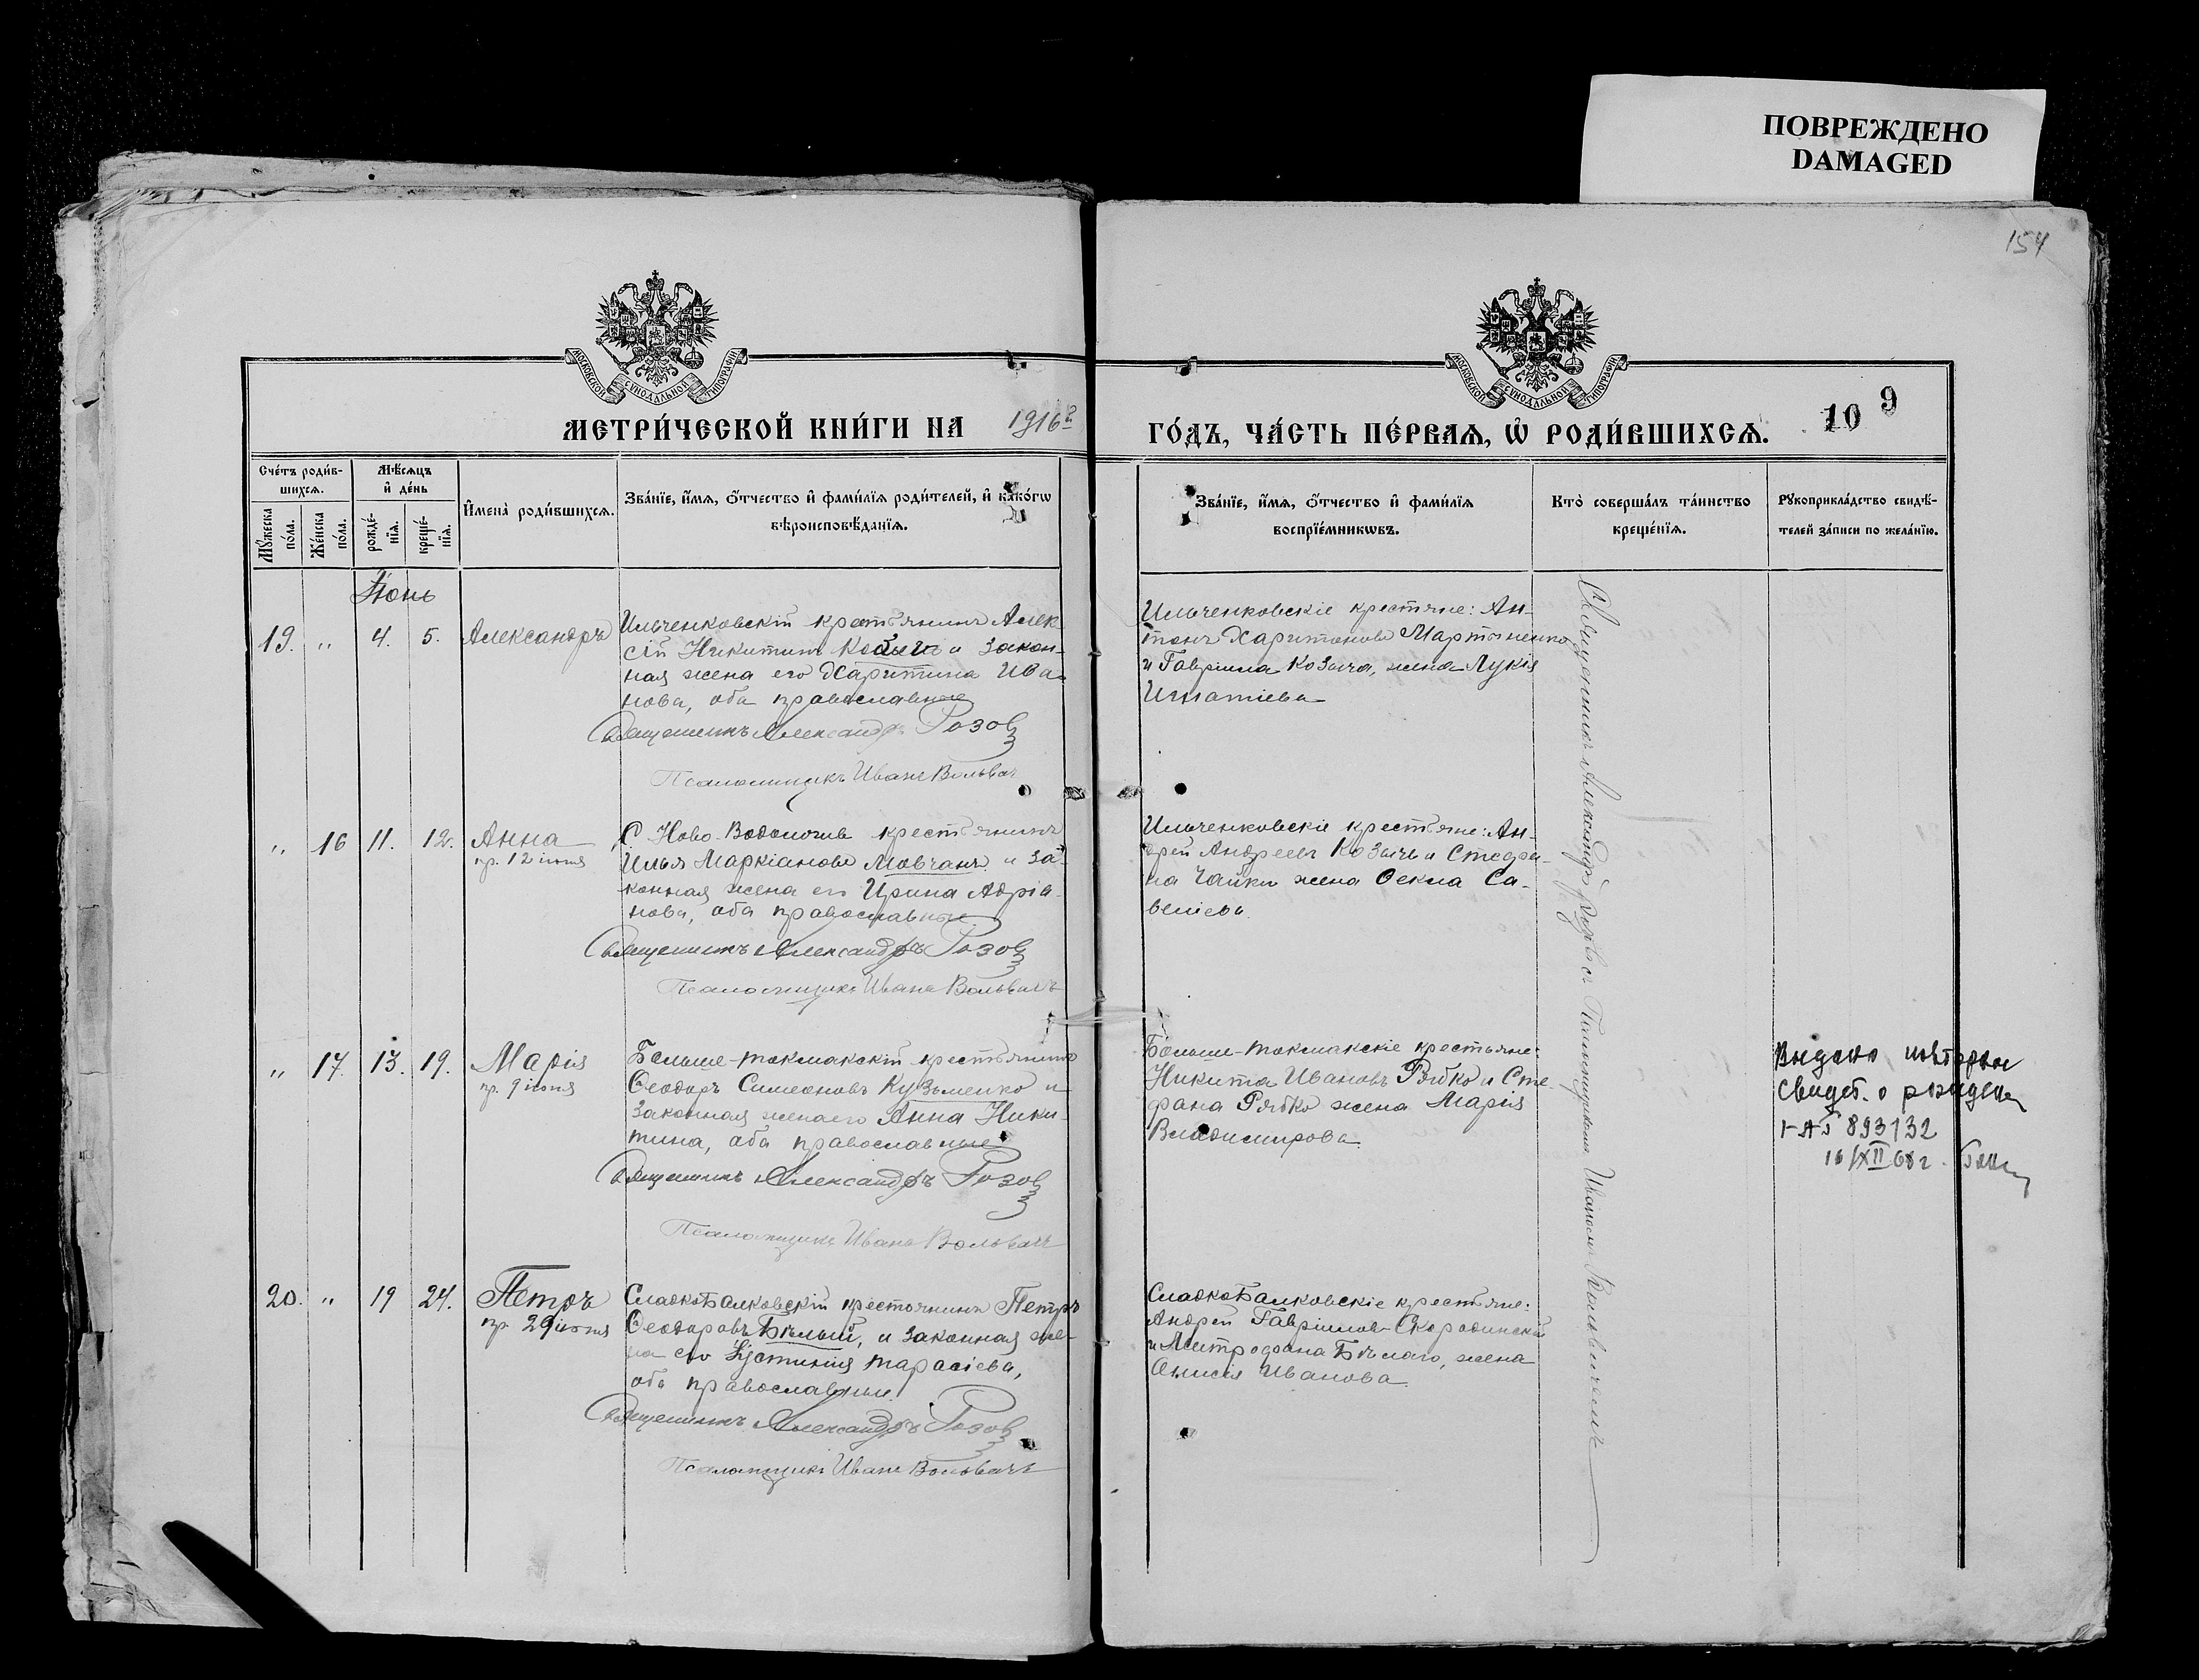 ПОВРЕЖДЕНО
DAMAGED
154
МОСКОВСКОЙ СѴНОДАЛЬНОЙ ТИПОГРАФІИ
МОСКОВСКОЙ СѴНОДАЛЬНОЙ ТИПОГРАФІИ
МЕТРИ́ЧЕСКОЙ КНИ́ГИ НА 1916 г
ГО́ДЪ, ЧА́СТЬ ПЕ́РВАѦ, Ѡ҆ РОДИ́ВШИХСѦ. 10 9
Сче́тъ роди́в-
шихсѧ.
Мꙋ́жеска по́ла.
Же́нска по́ла.
Мѣ́сѧцъ
и҆ де́нь
рожде́-
нїѧ.
креще́-
нїѧ.
И҆мена̀ роди́вшихсѧ.
Зва́нїе, и҆́мѧ, ѻ҆́тчество и҆ фами́лїѧ роди́телей, и҆ како́гѡ
вѣроисповѣ́данїѧ.
Зва́нїе, и҆́мѧ, ѻ҆́тчество и҆ фами́лїѧ
воспрїе́мникѡвъ.
Кто̀ соверша́лъ та́инство
креще́нїѧ.
Рꙋкоприкла́дство свидѣ́-
телей за́писи по жела́нїю.
Іюнь
19. " 4. 5. Александръ
Ильченковскій крестьянинъ Алек
сѣй Никитинъ Козычъ и закон-
ная жена его Харитина Ива-
нова, оба православные
Священникъ Александръ Розов
Псаломщикъ Иванъ Вольвачъ
Ильченковскіе крестяне: Ан-
тонъ Харитоновъ Мартыненко
и Гавріила Козыча, жена Лукія
Игнатіева
" 16 11. 12. Анна
пр. 12 іюня
С. Ново-Водологив крестьянинъ
Илья Маркіановъ Мовчанъ и за-
конная жена его Ирина Адріа-
нова, оба православные
Священникъ Александръ Розов
Псаломщикъ Иванъ Вольвачъ
Ильченковскіе крестьяне: Ан-
дрей Андреевъ Козычъ и Стефа-
на Чайки жена Ѳекла Са-
веліева
" 17. 13. 19. Марія
пр. 9 іюня
Больше-токмакскій крестьянинъ
Ѳеодоръ Симеоновъ Кузьменко и
законная жена его Анна Ники-
тина, оба православные
Священникъ Александръ Розов
Псаломщикъ Иванъ Вольвачъ
Больше-токмакскіе крестьяне:
Никита Ивановъ Рябко и Сте
фана Рябко жена Марія
Владимирова
Выдано повторн
свидет. о рожден
893132
16/XII 68 г.
20. " 19 24. Петръ
пр. 29 іюня
СладкоБалковскій крестьянинъ Петръ
Ѳеодоровъ Бѣлый, и законная же-
на его Іустинія Тарасіева,
оба православные
Священникъ Александръ Розов
Псаломщикъ Иванъ Вольвачъ
СладкоБалковскіе крестьяне:
Андрей Гавріиловъ Скородинскій
и Митрофана Бѣлаго, жена
Анисія Иванова
Священникъ Александръ Розовъ съ Псаломщикомъ Иваномъ Вольвачемъ